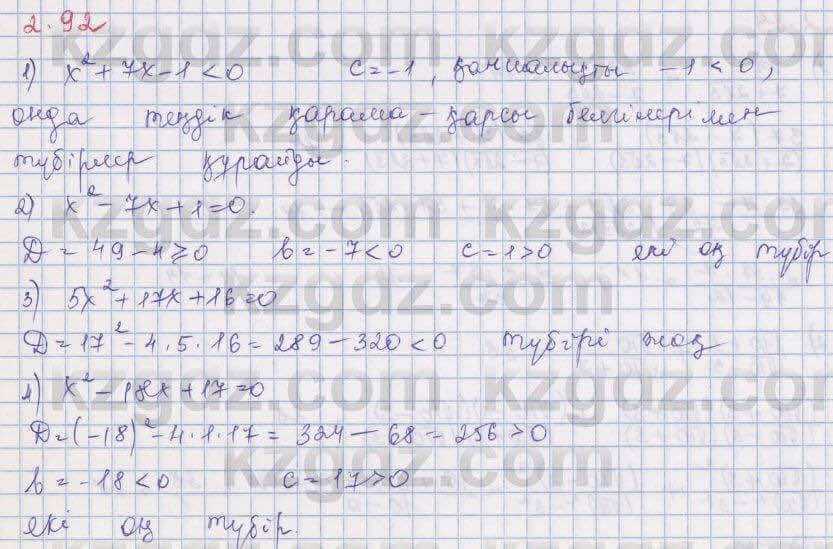 2.92
1) x² + 7x - 1 < 0 c = -1, қаншалықты -1 < 0,
онда теңдік қарама-қарсы белгілерімен
түбірлер құрайды.
2) x² - 7x + 1 = 0.
D = 49 - 4 ≥ 0 b = -7 < 0 c = 1 > 0 екі оң түбір
3) 5x² + 17x + 16 = 0
D = 17² - 4·5·16 = 289 - 320 < 0 түбірі жоқ
4) x² - 18x + 17 = 0
D = (-18)² - 4·1·17 = 324 - 68 = 256 > 0
b = -18 < 0 c = 17 > 0
екі оң түбір.
kzgdz.com